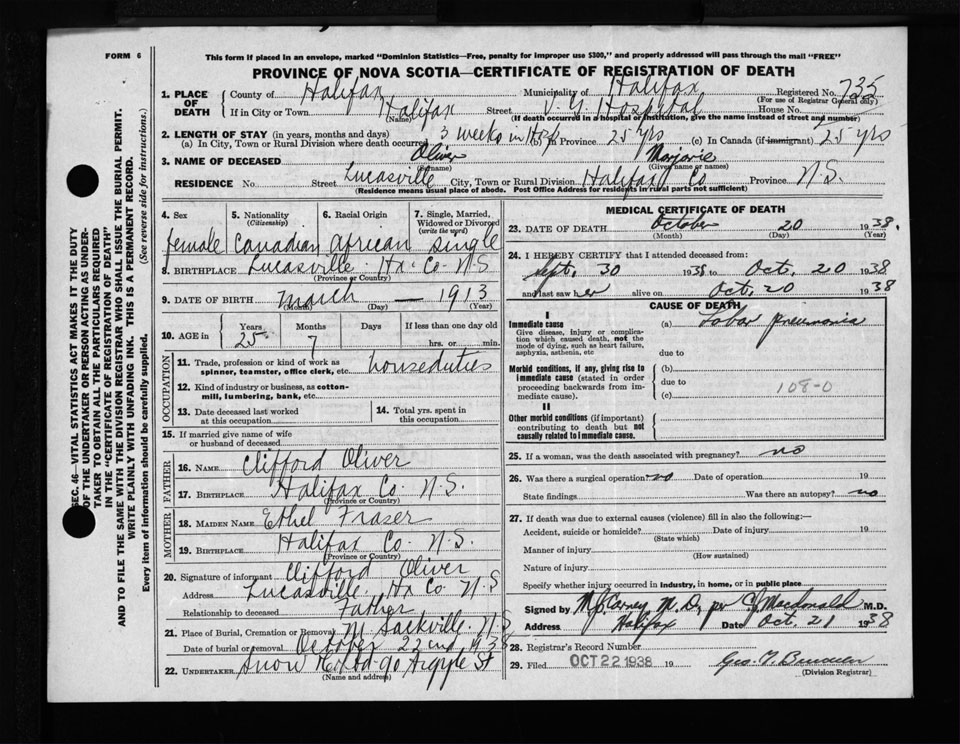 FORM 6
This form if placed in an envelope, marked "Dominion Statistics—Free, penalty for improper use $300," and properly addressed will pass through the mail "FREE"
PROVINCE OF NOVA SCOTIA—CERTIFICATE OF REGISTRATION OF DEATH
1. PLACE OF DEATH County of Halifax Municipality of Halifax Registered No. 735
(For use of Registrar General only)
If in City or Town Halifax Street V.G. Hospital House No.
(Name) (If death occurred in a hospital or institution, give name instead of street and number)
2. LENGTH OF STAY (in years, months and days)
(a) In City, Town or Rural Division where death occurred 3 weeks in Hosp (b) In Province 25 yrs (c) In Canada (if immigrant) 25 yrs
3. NAME OF DECEASED Oliver Marjorie
(Surname) (Given name or names)
RESIDENCE No. Street Lucasville City, Town or Rural Division Halifax Co Province N.S.
(Residence means usual place of abode. Post Office Address for residents in rural parts not sufficient)
4. Sex 5. Nationality (Citizenship) 6. Racial Origin 7. Single, Married, Widowed or Divorced (write the word)
female Canadian African single
8. BIRTHPLACE Lucasville Hx. Co. N.S
(Province or Country)
9. DATE OF BIRTH March — 1913
(Month) (Day) (Year)
10. AGE in Years Months Days If less than one day old
25 7 hrs. or min.
OCCUPATION
11. Trade, profession or kind of work as spinner, teamster, office clerk, etc. houseduties
12. Kind of industry or business, as cotton-mill, lumbering, bank, etc.
13. Date deceased last worked at this occupation 14. Total yrs. spent in this occupation
15. If married give name of wife or husband of deceased
FATHER
16. NAME Clifford Oliver
17. BIRTHPLACE Halifax Co. N.S.
(Province or Country)
MOTHER
18. MAIDEN NAME Ethel Fraser
19. BIRTHPLACE Halifax Co. N.S.
(Province or Country)
20. Signature of informant Clifford Oliver
Address Lucasville Hx Co N.S
Relationship to deceased Father
21. Place of Burial, Cremation or Removal M Sackville. N.S
Date of burial or removal October 22nd 1938
22. UNDERTAKER Snow & Co Ltd 90 Argyle St
(Name and address)
MEDICAL CERTIFICATE OF DEATH
23. DATE OF DEATH October 20 1938.
(Month) (Day) (Year)
24. I HEREBY CERTIFY that I attended deceased from:
Sept. 30 1938 to Oct. 20 1938
and last saw her alive on Oct. 20 1938
CAUSE OF DEATH
I
Immediate cause (a) Lobar pneumonia
Give disease, injury or complication which caused death, not the mode of dying, such as heart failure, asphyxia, asthenia, etc due to
Morbid conditions, if any, giving rise to immediate cause (stated in order proceeding backwards from immediate cause). (b)
due to
(c) 108-0
II
Other morbid conditions (if important) contributing to death but not causally related to immediate cause.
25. If a woman, was the death associated with pregnancy? no
26. Was there a surgical operation? no Date of operation 19
State findings Was there an autopsy? no
27. If death was due to external causes (violence) fill in also the following:—
Accident, suicide or homicide? Date of injury 19
(State which)
Manner of injury
(How sustained)
Nature of injury
Specify whether injury occurred in industry, in home, or in public place
Signed by M.J. Carney M.D. per C.J. Macdonald M.D.
Address Halifax Date Oct. 21 1938
28. Registrar's Record Number
29. Filed OCT 22 1938 19
(Division Registrar)
SEC. 46—VITAL STATISTICS ACT MAKES IT THE DUTY
OF THE UNDERTAKER OR PERSON ACTING AS UNDER-
TAKER TO OBTAIN ALL THE PARTICULARS REQUIRED
IN THE "CERTIFICATE OF REGISTRATION OF DEATH"
AND TO FILE THE SAME WITH THE DIVISION REGISTRAR WHO SHALL ISSUE THE BURIAL PERMIT.
WRITE PLAINLY WITH UNFADING INK. THIS IS A PERMANENT RECORD.
Every item of information should be carefully supplied. (See reverse side for instructions.)